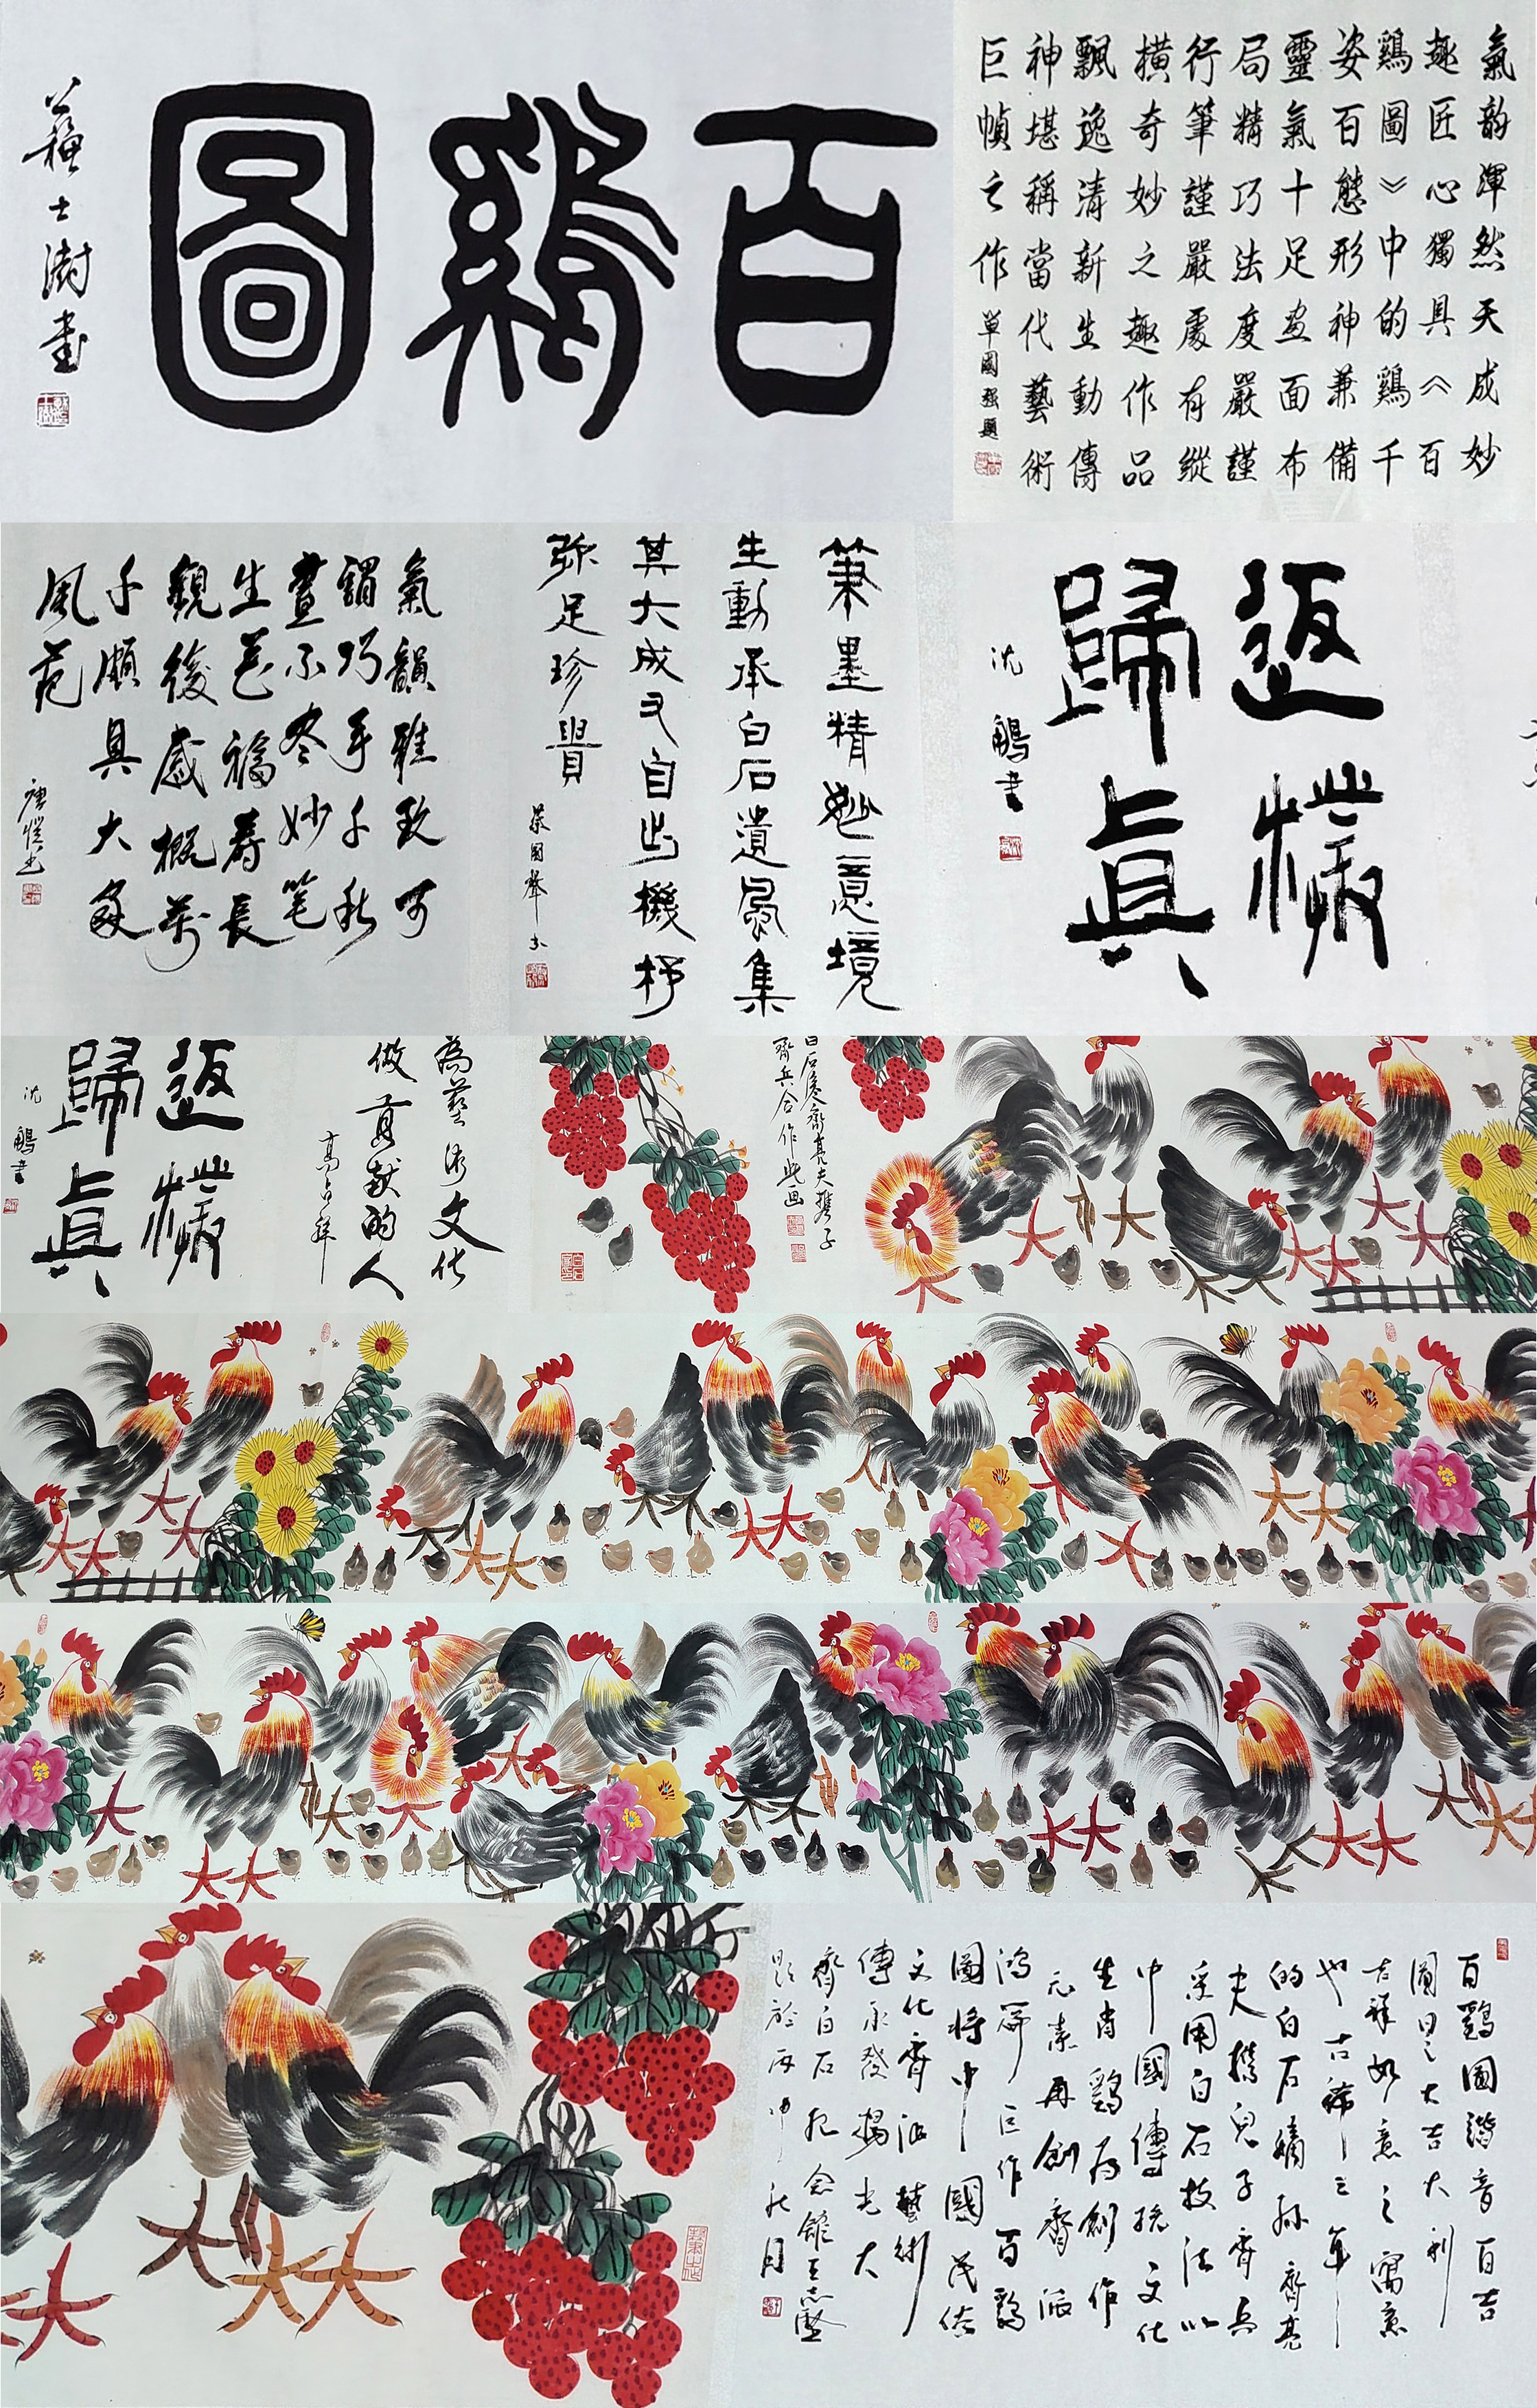 百鷄圖
蘇士澍書
氣韵渾然天成妙
趣匠心獨具《百
鷄圖》中的鷄千
姿百態形神兼備
靈氣十足画面布
局精巧法度嚴謹
行筆謹嚴處有縱
横奇妙之趣作品
飄逸清新生動傳
神堪稱當代藝術
巨幀之作
單國强題
返樸
歸真
沈鵬書
筆墨精妙意境
生動承白石遺風集
其大成又自出機杼
弥足珍貴
氣韻雅致可
謂巧手千秋
畫不盡妙笔
生花福壽長
觀後感概萬
千頗具大家
風范
為藝術文化
做貢献的人
高占祥
返樸
歸真
沈鵬書
白石後裔齊亮夫携子
齊兵合作此画
百鷄圖諧音百吉
圖曰之大吉大利
吉祥如意之寓意
也古稀之年
的白石嫡孫齊亮
夫携兒子齊兵
采用白石技法以
中國傳統文化
生肖鷄為創作
元素再創齊派
鴻篇巨作百鷄
圖將中國茂俗
文化齊派藝術
傳承發揚光大
齊白石纪念館王志堅
題於丙申秋月